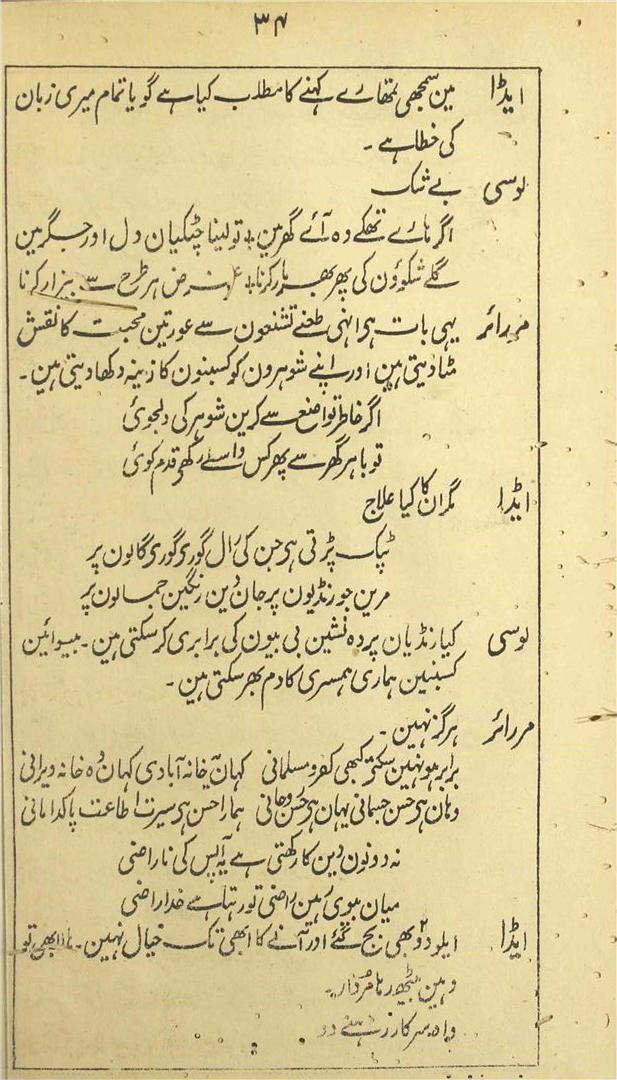 ۳۴
ایڈا مین سمجھی تمھارے کہنے کا مطلب کیا ہے گویا تمام میری زبان
کی خطا ہے ۔
لوسی بے شک
اگر ہارے تھکے وہ آئے گھر مین ٭ تو لینا چٹکیان دل اور جگر مین
گلے شکوؤن کی پھر بھر مار کرنا ٭ غرض ہر طرح سے بیزار کرنا
مررائر یہی بات ہو انہی طعنے تشنعون سے عورتین محبت کا نقش
مٹا دیتی ہین اور اپنے شوہرون کو کسبنون کا زینہ دکھا دیتی ہین ۔
اگر خاطر تواضع سے کرین شوہر کی دلجوئی
تو باہر گھر سے پھر کس واسطے رکھے قدم کوئی
ایڈا مگر ان کا کیا علاج
ٹپک پڑتی ہو جن کی رال گوری گوری گالون پر
مرین جو رنڈیون پر جان دین رنگین جمالون پر
لوسی کیا رنڈیان پردہ نشین بی بیون کی برابری کر سکتی ہین ۔ بیسوائین
کسبنین ہماری ہمسری کا دم بھر سکتی ہین ۔
مررائر ہرگز نہین ۔
برابر ہو نہین سکتی کبھی کفر و مسلمانی کہان یہ خانہ آبادی کہان وہ خانہ ویرانی
وہان ہی حسن جسمانی یہان ہی حسن روحانی ہمارا حسن ہی سیرت اطاعت پاکدامانی
نہ دونون دین کا رکھتی ہے یہ آپس کی ناراضی
میان بیوی ہین راضی تو رہتا ہے خدا راضی
ایڈا ایلو دو بھی بج گئے اور آنے کا ابھی تک خیال نہین ۔ ابھی تو
وہین بیٹھو رہا مردار ۔
واہ سرکار رہنے دو